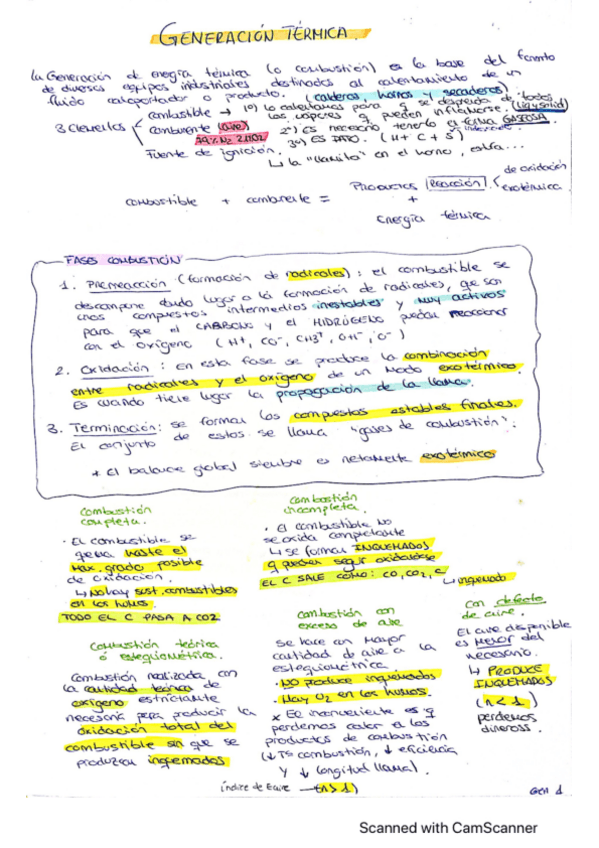 GENERACIÓN TÉRMICA.
La Generación de energía térmica (o combustión) es la base del
de diversos equipos industriales destinados al calentamiento de un
fluido caloportador o producto. (calderas, hornos y secaderos).
3 Elementos combustible → 1º) lo calentamos para q se desprenda de todos
los vapores q pueden inflamarse. (liq y solid)
comburente (aire) 2º) es necesario tenerlo en forma GASEOSA
79% N2 21%O2 3º) ES DATO. (H + C + S)
Fuente de ignición. ↳ la "llamita" en el horno, estufa...
combustible + comburente = Productos Reacción de oxidación
exotérmica
+
energía térmica
FASES COMBUSTIÓN
1. Prerreacción (formación de radicales): el combustible se
descompone dando lugar a la formación de radicales, que son
unos compuestos intermedios inestables y muy activos
para que el CARBONO y el HIDRÓGENO puedan reaccionar
con el oxígeno (H+, CO-, CH3+, OH-, O-)
2. Oxidación: en esta fase se produce la combinación
entre radicales y el oxígeno de un modo exotérmico.
Es cuando tiene lugar la propagación de la llama.
3. Terminación: se forman los compuestos estables finales.
El conjunto de estos se llama "gases de combustión".
* El balance global siempre es netamente exotérmico
Combustión
completa.
· El combustible se
quema hasta el
max. grado posible
de oxidación.
↳ No hay sust. combustibles
en los humos.
TODO EL C PASA A CO2
Combustión
incompleta.
· El combustible no
se oxida completamente
↳ se forman INQUEMADOS
q pueden seguir oxidándose
EL C SALE COMO: CO, CO2, C
↳ inquemado
Combustión teórica
ó estequiométrica.
Combustión realizada con
la cantidad teórica de
oxígeno estrictamente
necesaria para producir la
oxidación total del
combustible sin que se
produzcan inquemados
Combustión con
exceso de aire
Se hace con mayor
cantidad de aire a la
estequiométrica.
· No produce inquemados
· Hay O2 en los humos.
* El inconveniente es q
perdemos calor a los
productos de combustión
(↓ Tª combustión, ↓ eficiencia
y ↓ longitud llama).
índice de aire → (n > 1)
Con defecto
de aire.
El aire disponible
es menor del
necesario.
↳ PRODUCE
INQUEMADOS
(n < 1)
perdemos
dineross.
Gen 1
Scanned with CamScanner